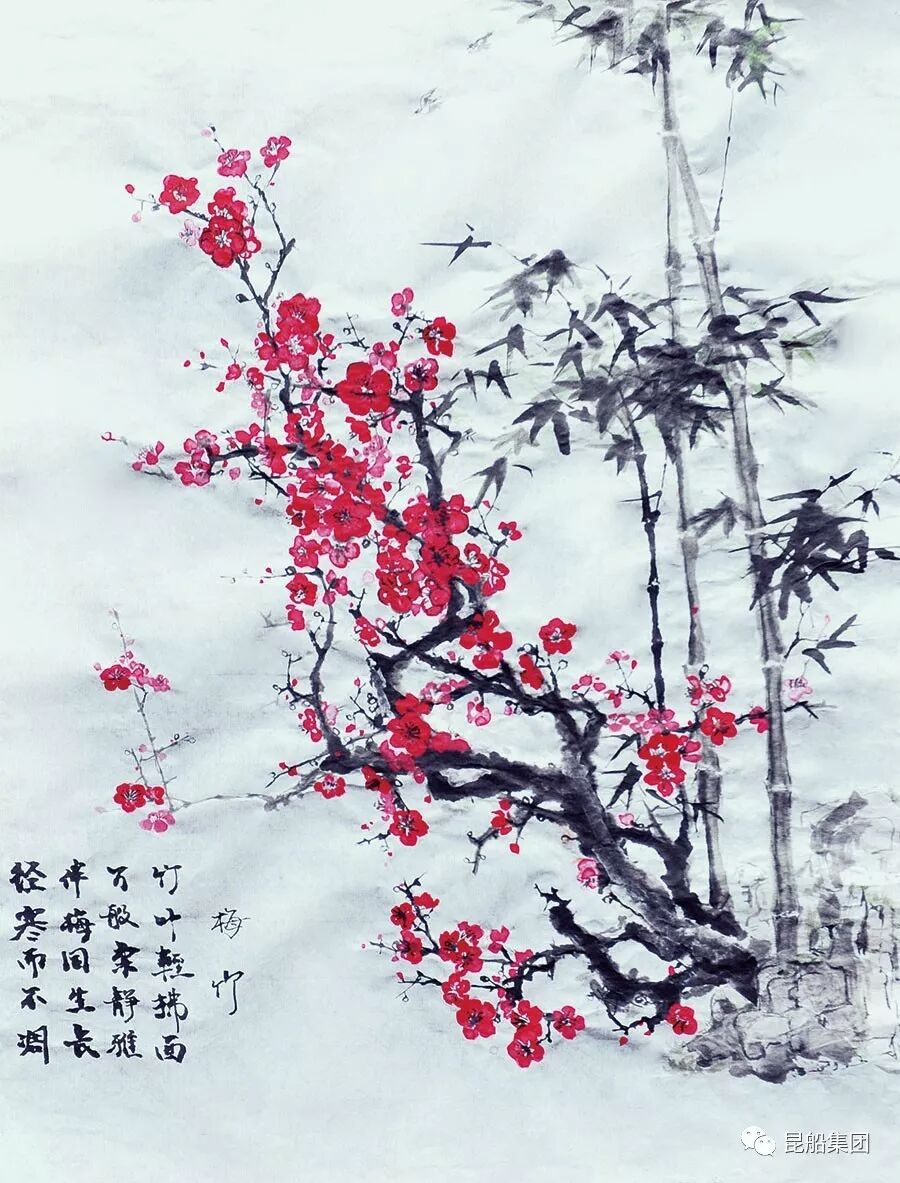 梅竹
竹叶輕拂面
万般柔静雅
伴梅同生长
经寒而不凋
昆船集团